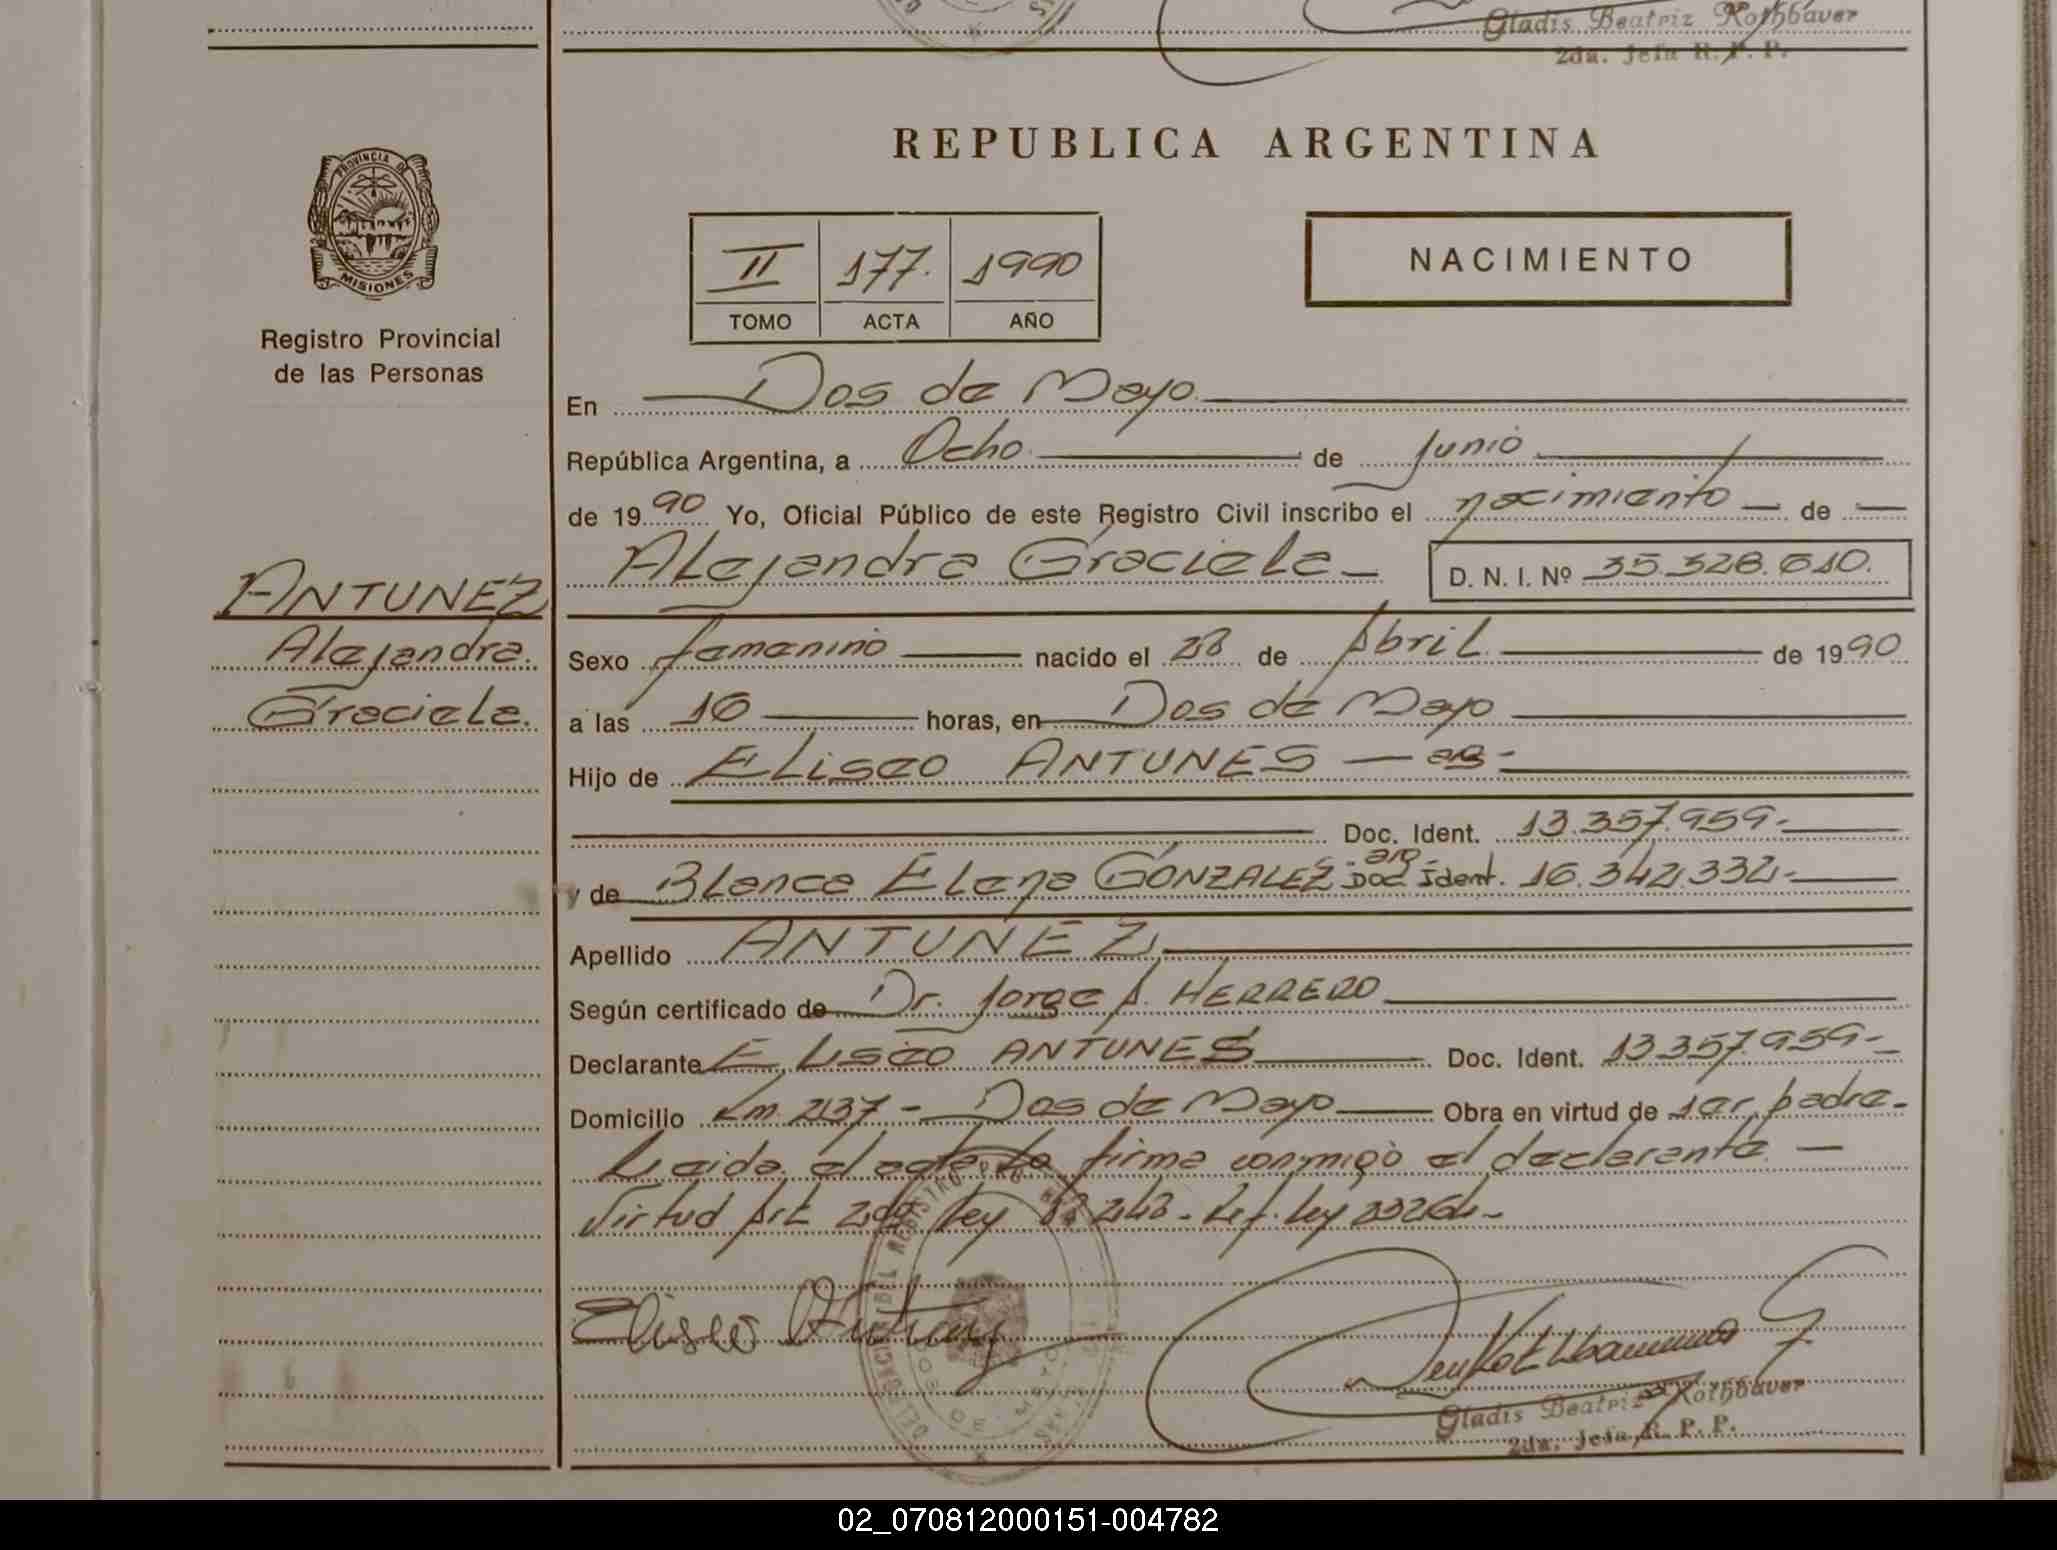 Gladis Beatriz Rothbauer
2da. Jefa R. P. P.
REPUBLICA ARGENTINA
PROVINCIA DE
MISIONES
Registro Provincial
de las Personas
II 177. 1990
TOMO ACTA AÑO
NACIMIENTO
En Dos de Mayo
República Argentina, a Ocho de junio
de 1990 Yo, Oficial Público de este Registro Civil inscribo el nacimiento de
Alejandra Graciela D. N. I. Nº 35.328.610.
ANTUNEZ
Alejandra
Graciela.
Sexo femenino nacido el 28 de Abril de 1990
a las 16 horas, en Dos de Mayo
Hijo de Eliseo ANTUNES - arg -
Doc. Ident. 13.357.959-
y de Blanca Elena GONZALEZ - arg - Doc Ident. 16.342.332-
Apellido ANTUNEZ
Según certificado de Dr. Jorge A. HERRERO
Declarante Eliseo ANTUNES Doc. Ident. 13357.959-
Domicilio Km. 237 - Dos de Mayo Obra en virtud de 1er. padre-
Leida el acta la firma conmigo el declarante -
Virtud Art ley ley 23264-
Eliseo
DOS DE MAYO
Gladis Beatriz Rothbauer
2da. Jefa R. P. P.
02_070812000151-004782